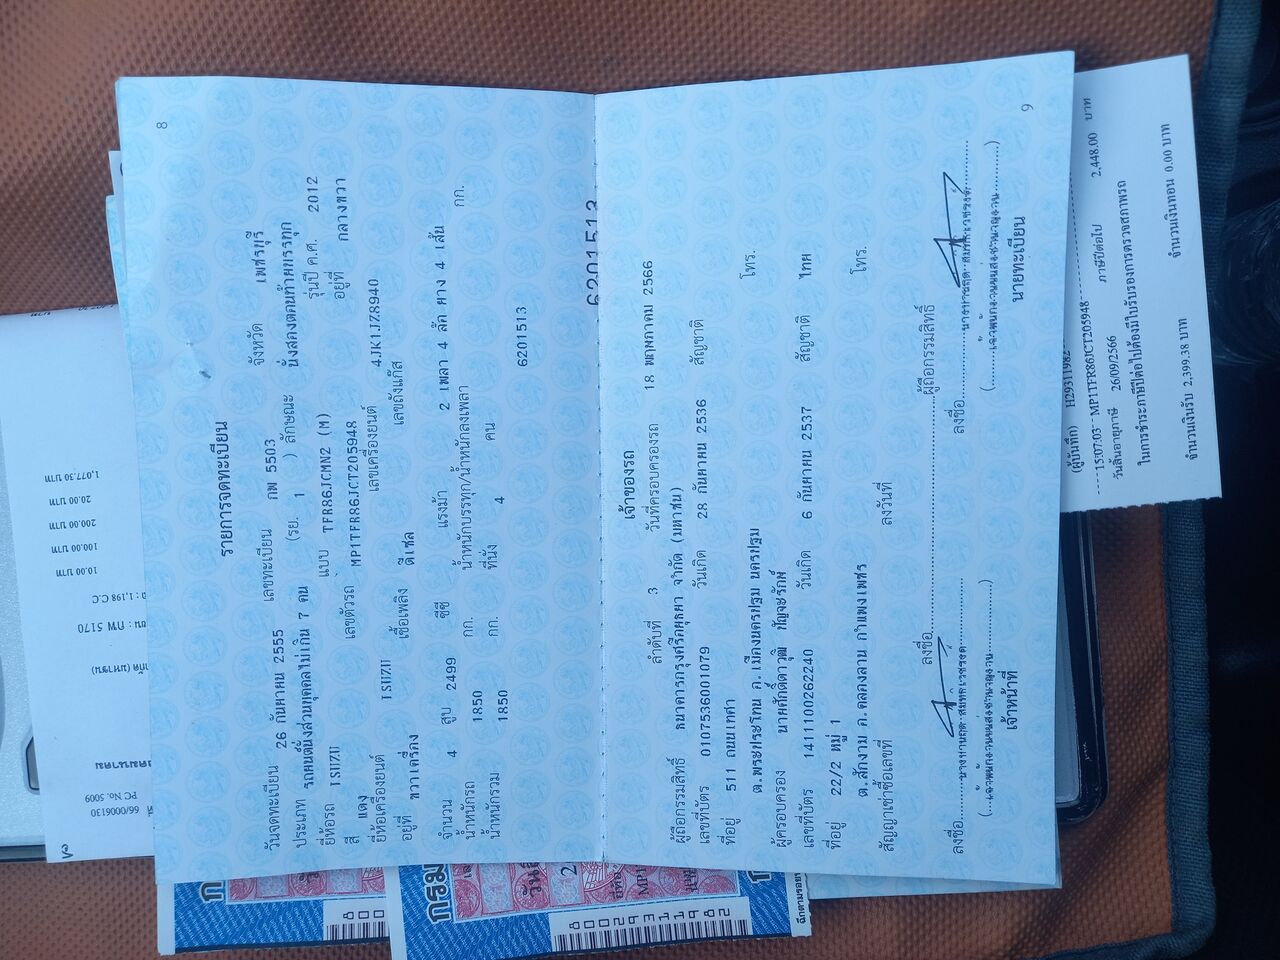 8
รายการจดทะเบียน
วันจดทะเบียน 26 กันยายน 2555 เลขทะเบียน กพ 5503 จังหวัด เพชรบุรี
ประเภท รถยนต์นั่งส่วนบุคคลไม่เกิน 7 คน (รย. 1 ) ลักษณะ นั่งสองตอนท้ายบรรทุก
ยี่ห้อรถ ISUZU แบบ TFR86JCMN2 (M) รุ่นปี ค.ศ. 2012
สี แดง เลขตัวรถ MP1TFR86JCT205948 อยู่ที่ กลางขวา
ยี่ห้อเครื่องยนต์ ISUZU เลขเครื่องยนต์ 4JK1JZ8940
อยู่ที่ ขวาเครื่อง เชื้อเพลิง ดีเซล เลขถังแก๊ส
จำนวน 4 สูบ 2499 ซีซี แรงม้า 2 เพลา 4 ล้อ ยาง 4 เส้น
น้ำหนักรถ 1850 กก. น้ำหนักบรรทุก/น้ำหนักลงเพลา กก.
น้ำหนักรวม 1850 กก. ที่นั่ง 4 คน
6201513
6201513
เจ้าของรถ
ลำดับที่ 3 วันที่ครอบครองรถ 18 พฤษภาคม 2566
ผู้ถือกรรมสิทธิ์ ธนาคารกรุงศรีอยุธยา จำกัด (มหาชน)
เลขที่บัตร 0107536001079 วันเกิด 28 กันยายน 2536 สัญชาติ
ที่อยู่ 511 ถนนเทศา
ต.พระประโทน อ.เมืองนครปฐม นครปฐม โทร.
ผู้ครอบครอง
เลขที่บัตร 1411100262240 วันเกิด 6 กันยายน 2537 สัญชาติ ไทย
ที่อยู่ 22/2 หมู่ 1
ต.สักงาม อ.คลองลาน กำแพงเพชร โทร.
สัญญาเช่าซื้อเลขที่ ลงวันที่
ลงชื่อ ผู้ถือกรรมสิทธิ์
ลงชื่อ
เจ้าหน้าที่
ลงชื่อ
นายทะเบียน
9
(ผู้บันทึก) H29311982
15:07:03- MP1TFR86JCT205948 2,448.00 บาท
วันสิ้นอายุภาษี 26/09/2566 ภาษีปีต่อไป
ในการชำระภาษีปีต่อไปต้องมีใบรับรองการตรวจสภาพรถ
จำนวนเงินรับ 2,399.38 บาท จำนวนเงินทอน 0.00 บาท
1,077.30 บาท
20.00 บาท
200.00 บาท
100.00 บาท
10.00 บาท
1,198 C.C
กพ 5170
PC No. 5009
66/0006130
กรม
80029311982